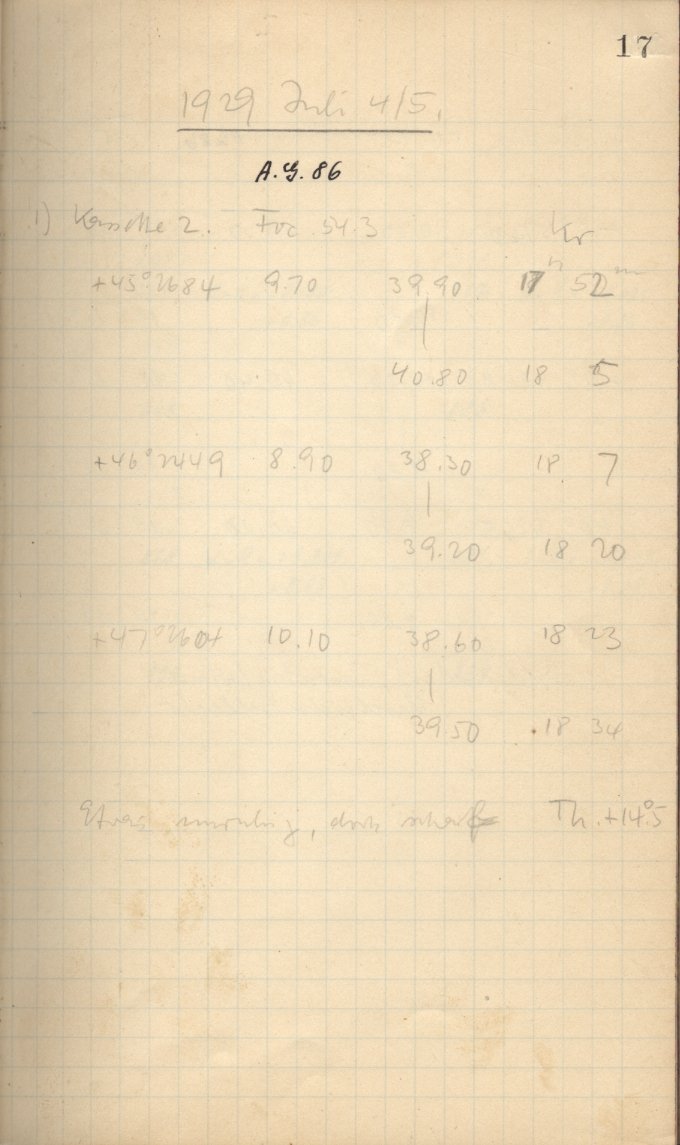 17
1929 Juli 4/5.
A.G. 86
1) Kassette 2. Foc. 54.3 Kr
+45°2684 9.70 39.90 17h 52m
40.80 18 5
+46°2449 8.90 38.30 18 7
39.20 18 20
+47°2604 10.10 38.60 18 23
39.50 18 34
Etwas unruhig, doch scharf Th. +14°.5